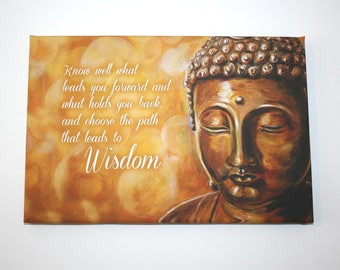 Know well what
leads you forward and
what holds you back,
and choose the path
that leads to
Wisdom